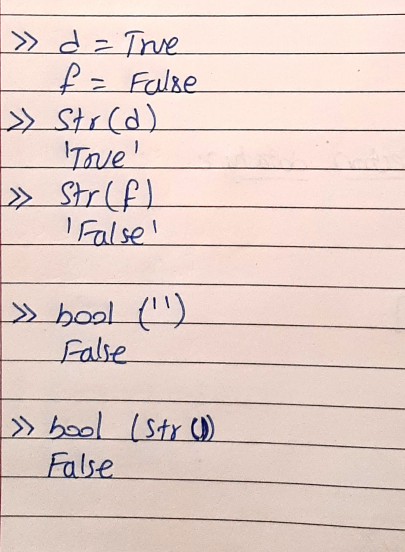 >> d = True
f = False
>> Str(d)
'True'
>> Str(f)
'False'
>> bool ('')
False
>> bool (Str())
False